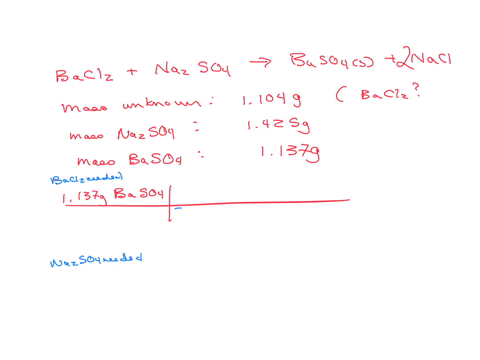 BaCl2 + Na2SO4 → BaSO4(s) + 2NaCl
mass unknown: 1.104g ( BaCl2?
mass Na2SO4: 1.425g
mass BaSO4: 1.137g
BaCl2 needed)
1.137g BaSO4
Na2SO4 needed